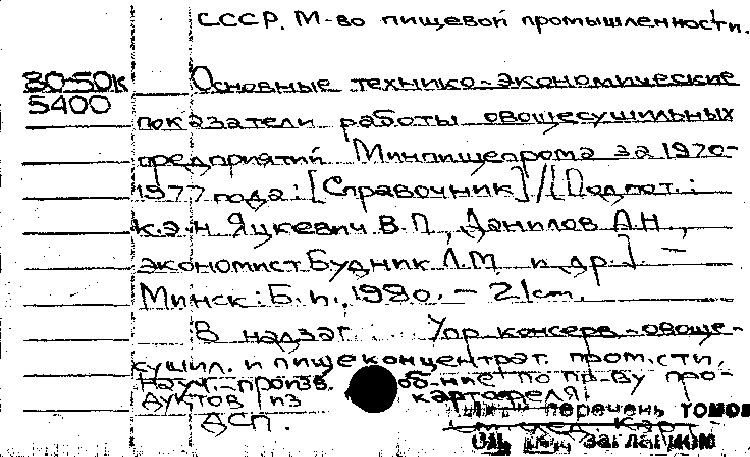 СССР. М-во пищевой промышленности.
80-50к
5400
Основные технико-экономические
показатели работы овощесушильных
предприятий Минпищепрома за 1970-
1977 года: [Справочник] / [Подгот.:
к.э.н Яцкевич В.П., Данилов А.Н.,
экономист Будник Л.М. и др.]. —
Минск: Б.и., 1980. - 21 cm.
В надзаг.: Упр консерв. - овоще-
сушил. и пищеконцентрат. пром.сти,
Науч.-произв. об-ние по пр-ву про-
дуктов из картофеля.
ДСП.
перечень томов
см. след. карт
заглавием